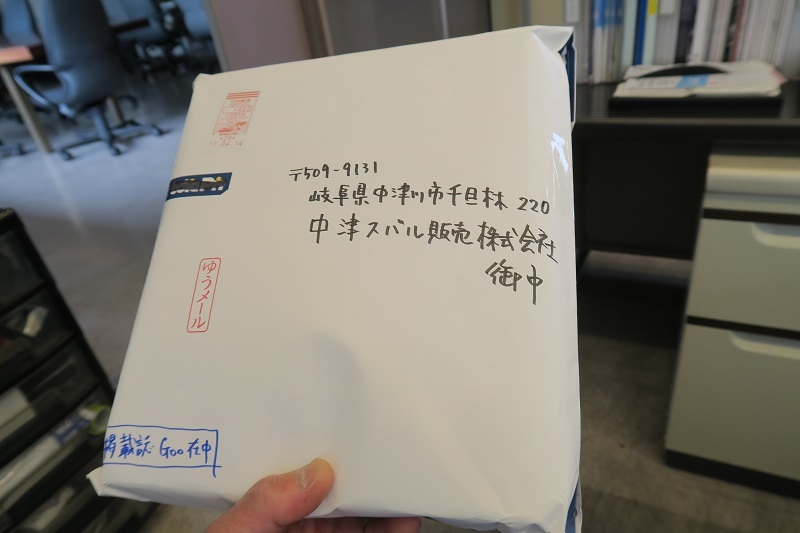 〒509-9131
岐阜県中津川市千旦林 220
中津スバル販売株式会社
御中
ゆうメール
掲載誌 Goo在中